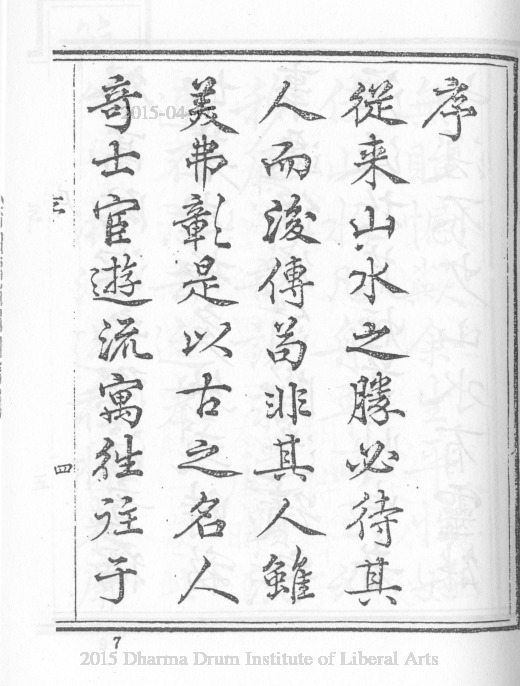 序
從来山水之勝必待其
人而後傳苟非其人雖
美弗彰是以古之名人
奇士宦遊流寓徃往于
三
四
7
2015 Dharma Drum Institute of Liberal Arts